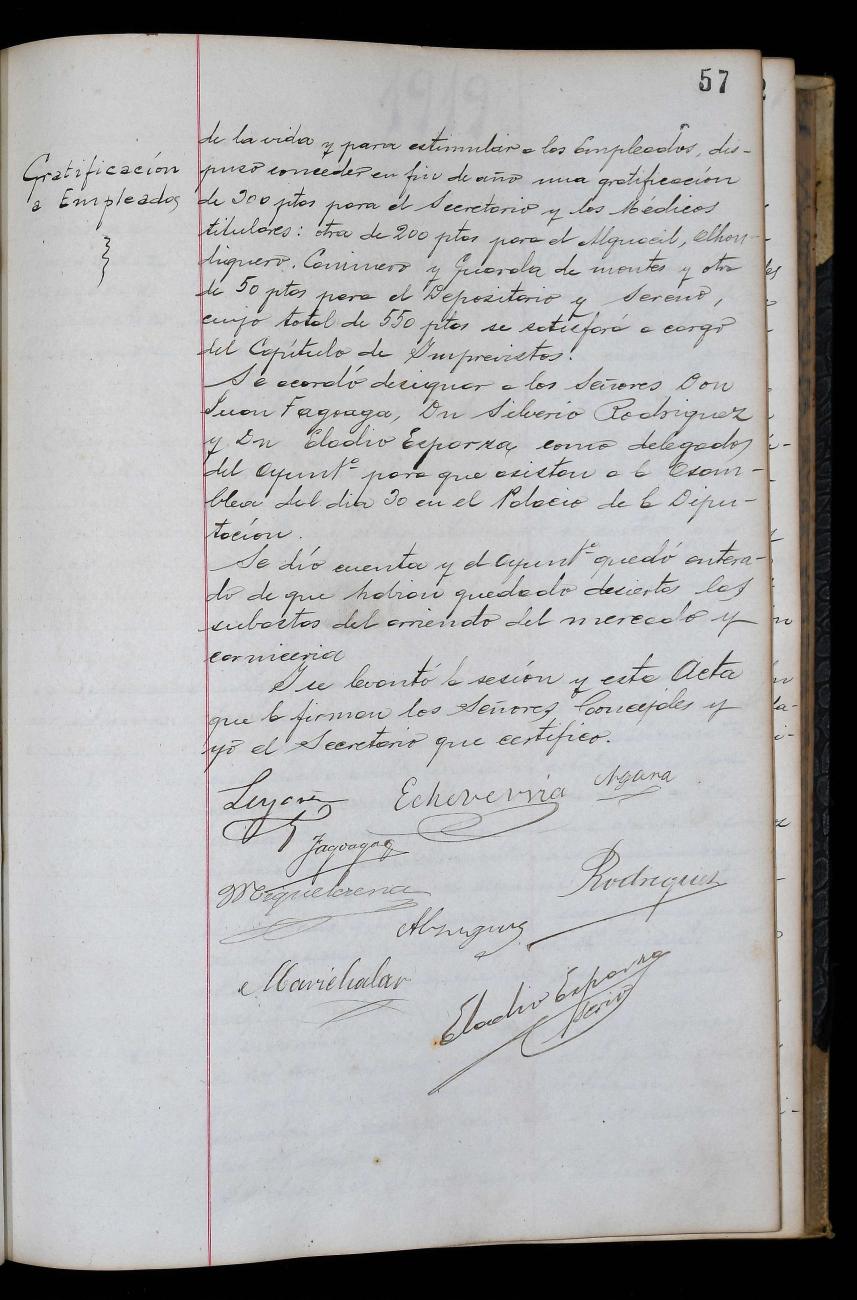 57
de la vida y para estimular a los Empleados, dis-
puso conceder en fin de año una gratificación
Gratificación
a Empleados
de 300 ptas para el Secretario y los Médicos
titulares: otra de 200 ptas para el Alguacil, Alhon-
diguero, Caminero y Guarda de montes y otra
de 50 ptas para el Depositario y Sereno,
cuyo total de 550 ptas se satisfará a cargo
del Capítulo de Imprevistos.
Se acordó designar a los Señores Don
Juan Fagoaga, Dn Silverio Rodriguez
y Dn Eladio Esparza como delegados
del Ayuntº para que asistan a la Asam-
blea del dia 30 en el Palacio de la Dipu-
tación.
Se dió cuenta y el Ayuntº quedó entera-
do de que habian quedado desiertas las
subastas del arriendo del mercado y
carniceria
Y se levantó la sesión y esta Acta
que la firman los Señores Concejales y
yo el Secretario que certifico.
Echeverria
Fagoaga
Miguelarena
Rodriguez
Marichalar
Eladio Esparza
Srio